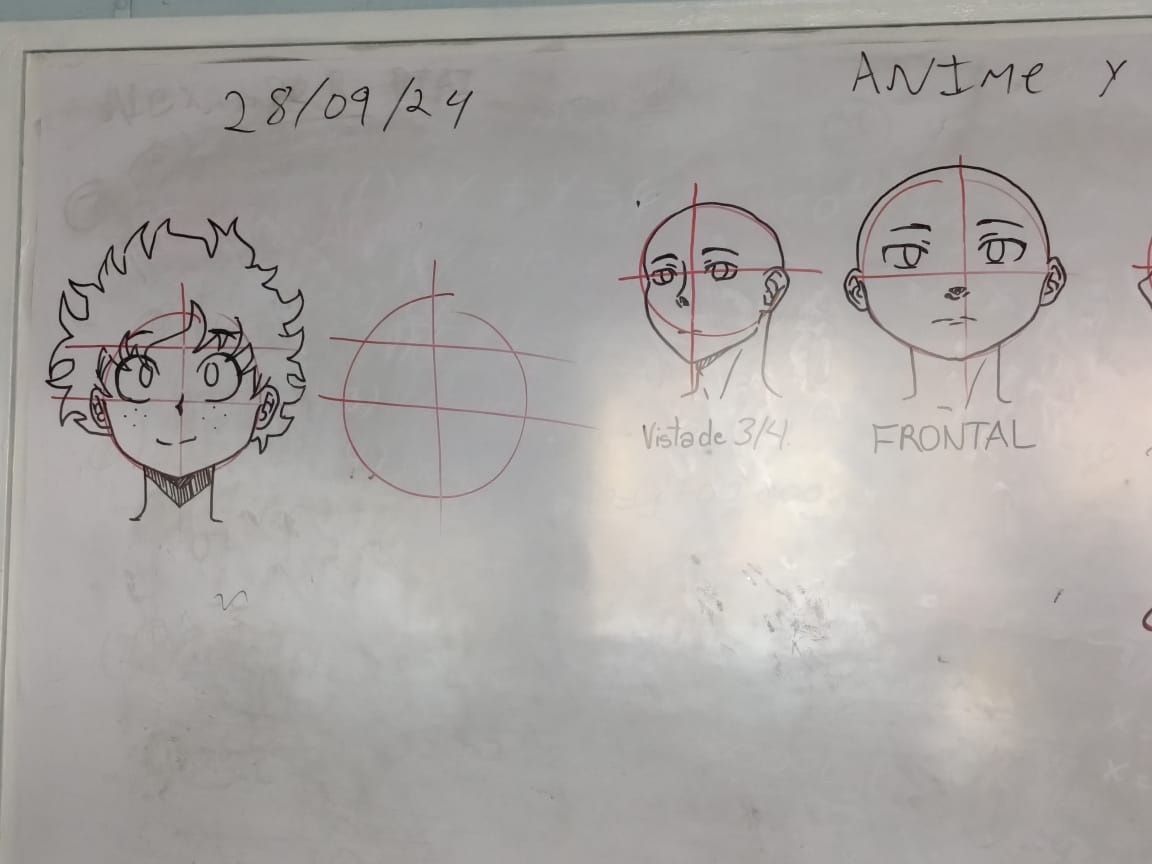 28/09/24
ANIMe Y
Vista de 3/4.
FRONTAL